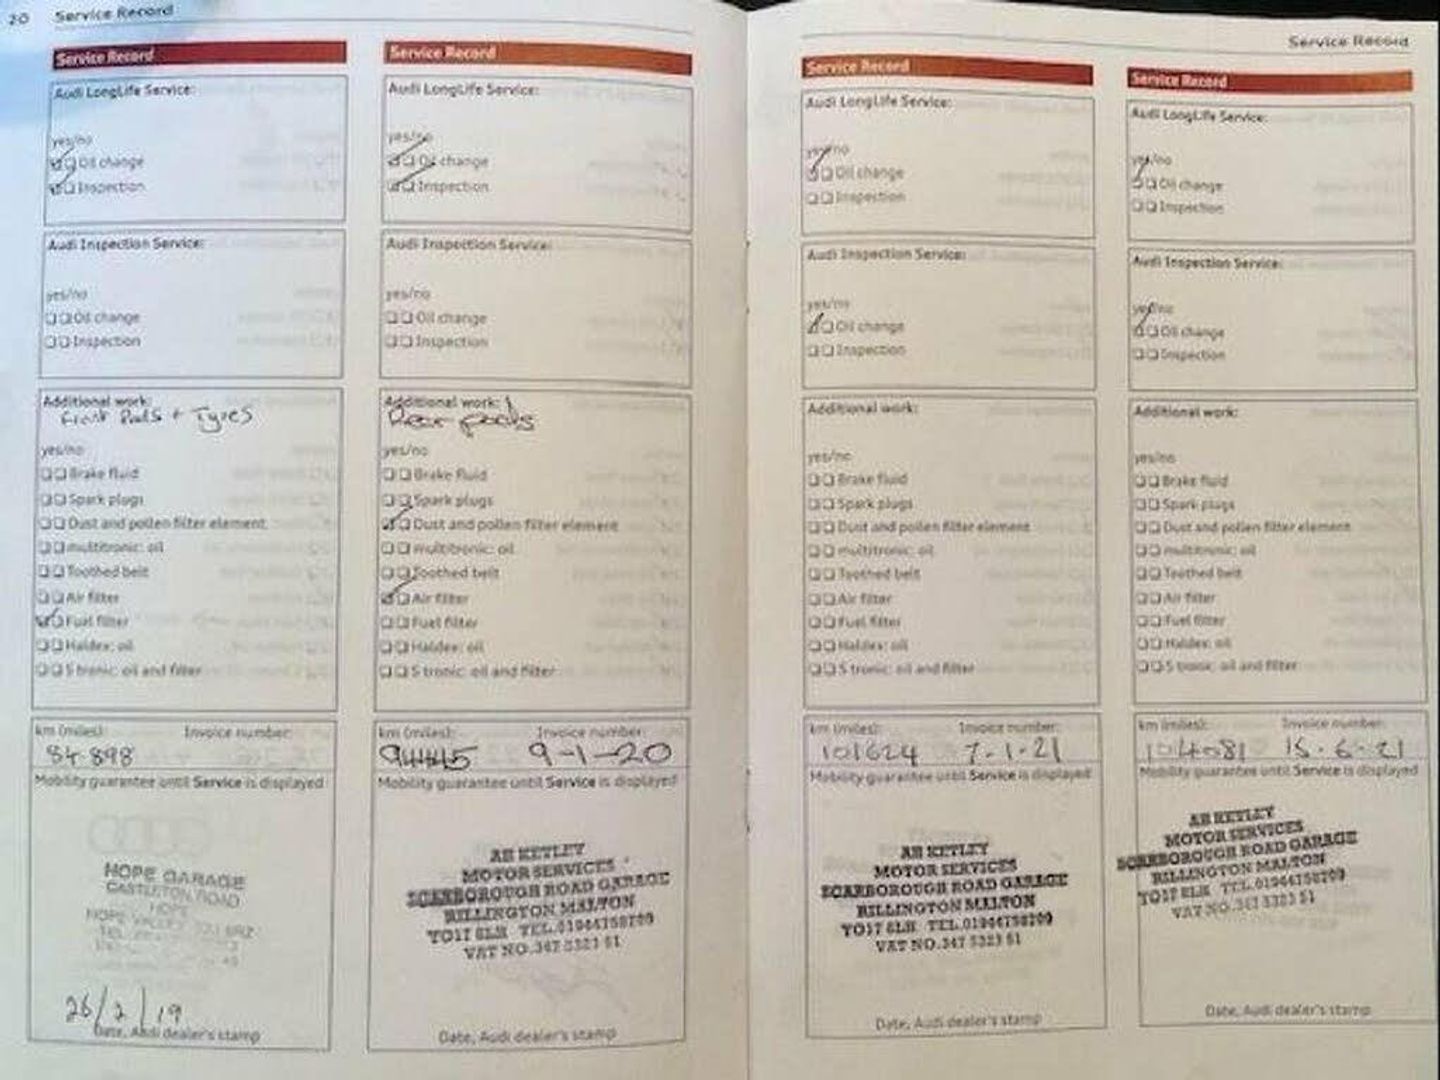 20 Service Record
Service Record
Audi LongLife Service:
yes/no
Oil change
Inspection
Audi Inspection Service:
yes/no
Oil change
Inspection
Additional work:
Front Pads + Tyres
yes/no
Brake fluid
Spark plugs
Dust and pollen filter element
multitronic: oil
Toothed belt
Air filter
Fuel filter
Haldex: oil
S tronic: oil and filter
km (miles): Invoice number:
84 898
Mobility guarantee until Service is displayed
HOPE GARAGE
CASTLETON ROAD
HOPE
HOPE VALLEY
26/2/19
Date, Audi dealer's stamp
Service Record
Audi LongLife Service:
yes/no
Oil change
Inspection
Audi Inspection Service:
yes/no
Oil change
Inspection
Additional work:
Rear pads
yes/no
Brake fluid
Spark plugs
Dust and pollen filter element
multitronic: oil
Toothed belt
Air filter
Fuel filter
Haldex: oil
S tronic: oil and filter
km (miles): Invoice number:
94445 9-1-20
Mobility guarantee until Service is displayed
AB KETLEY
MOTOR SERVICES
SCARBOROUGH ROAD GARAGE
RILLINGTON MALTON
YO17 8LH TEL.01944758209
VAT NO.347 5323 51
Date, Audi dealer's stamp
Service Record
Service Record
Audi LongLife Service:
yes/no
Oil change
Inspection
Audi Inspection Service:
yes/no
Oil change
Inspection
Additional work:
yes/no
Brake fluid
Spark plugs
Dust and pollen filter element
multitronic: oil
Toothed belt
Air filter
Fuel filter
Haldex: oil
S tronic: oil and filter
km (miles): Invoice number:
101624 7-1-21
Mobility guarantee until Service is displayed
AB KETLEY
MOTOR SERVICES
SCARBOROUGH ROAD GARAGE
RILLINGTON MALTON
YO17 8LH TEL.01944758209
VAT NO.347 5323 51
Date, Audi dealer's stamp
Service Record
Audi LongLife Service:
yes/no
Oil change
Inspection
Audi Inspection Service:
yes/no
Oil change
Inspection
Additional work:
yes/no
Brake fluid
Spark plugs
Dust and pollen filter element
multitronic: oil
Toothed belt
Air filter
Fuel filter
Haldex: oil
S tronic: oil and filter
km (miles): Invoice number:
104081 15-6-21
Mobility guarantee until Service is displayed
AB KETLEY
MOTOR SERVICES
SCARBOROUGH ROAD GARAGE
RILLINGTON MALTON
YO17 8LH TEL.01944758209
VAT NO.347 5323 51
Date, Audi dealer's stamp